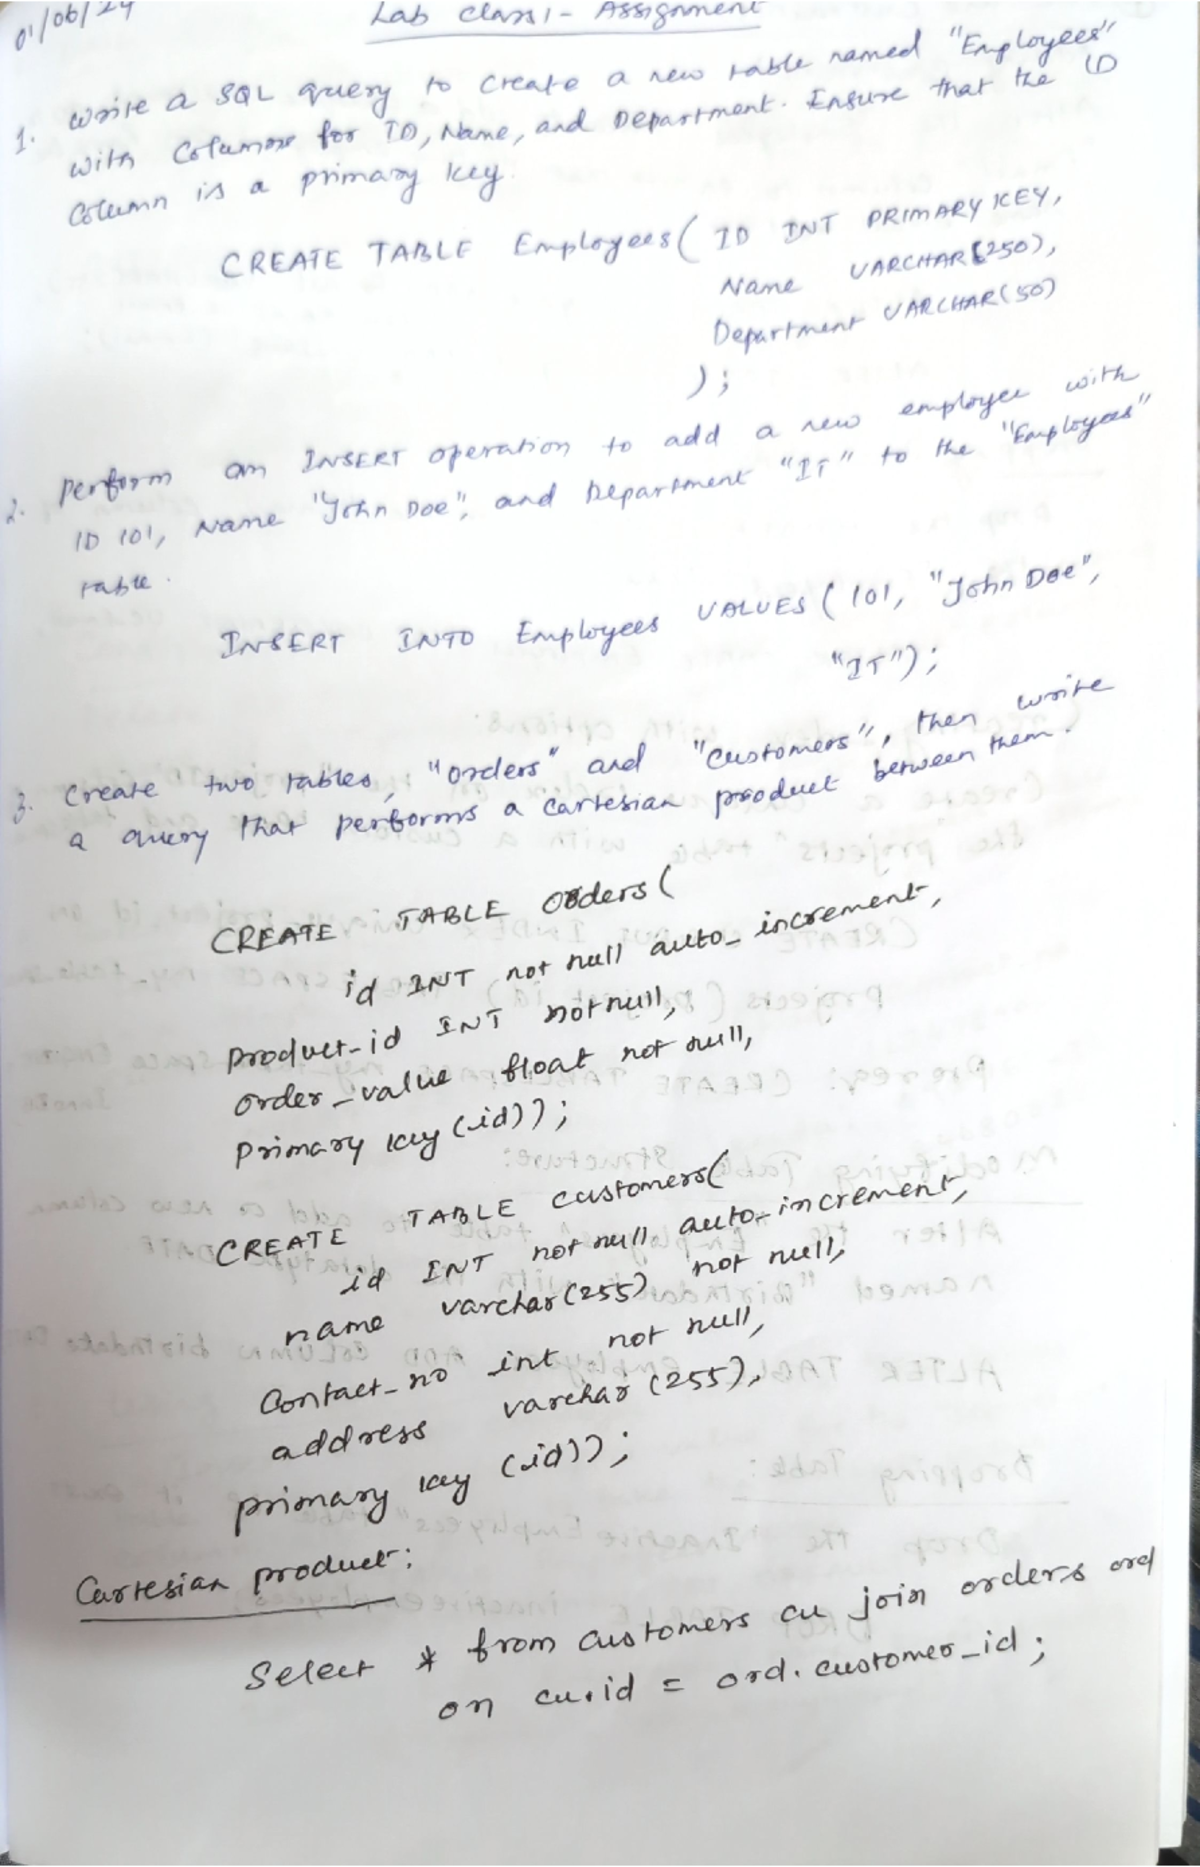 01/06/24
Lab class 1 - Assignment
1. Write a SQL query to create a new table named "Employees"
with Columns for ID, Name, and Department. Ensure that the ID
Column is a primary key.
CREATE TABLE Employees( ID INT PRIMARY KEY,
Name VARCHAR(250),
Department VARCHAR(50)
);
2. Perform an INSERT operation to add a new employee with
ID 101, Name "John Doe", and Department "IT" to the "Employees"
table.
INSERT INTO Employees VALUES ( 101, "John Doe",
"IT");
3. Create two tables, "Orders" and "Customers", then write
a query that performs a cartesian product between them.
CREATE TABLE Orders (
id INT not null auto_increment,
product_id INT not null,
order_value float not null,
Primary key (id));
CREATE TABLE customers(
id INT not null auto_increment,
name varchar(255) not null,
Contact_no int not null,
address varchar (255),
primary key (id));
Cartesian product:
Select * from customers cu join orders ord
on cu.id = ord.customer_id;